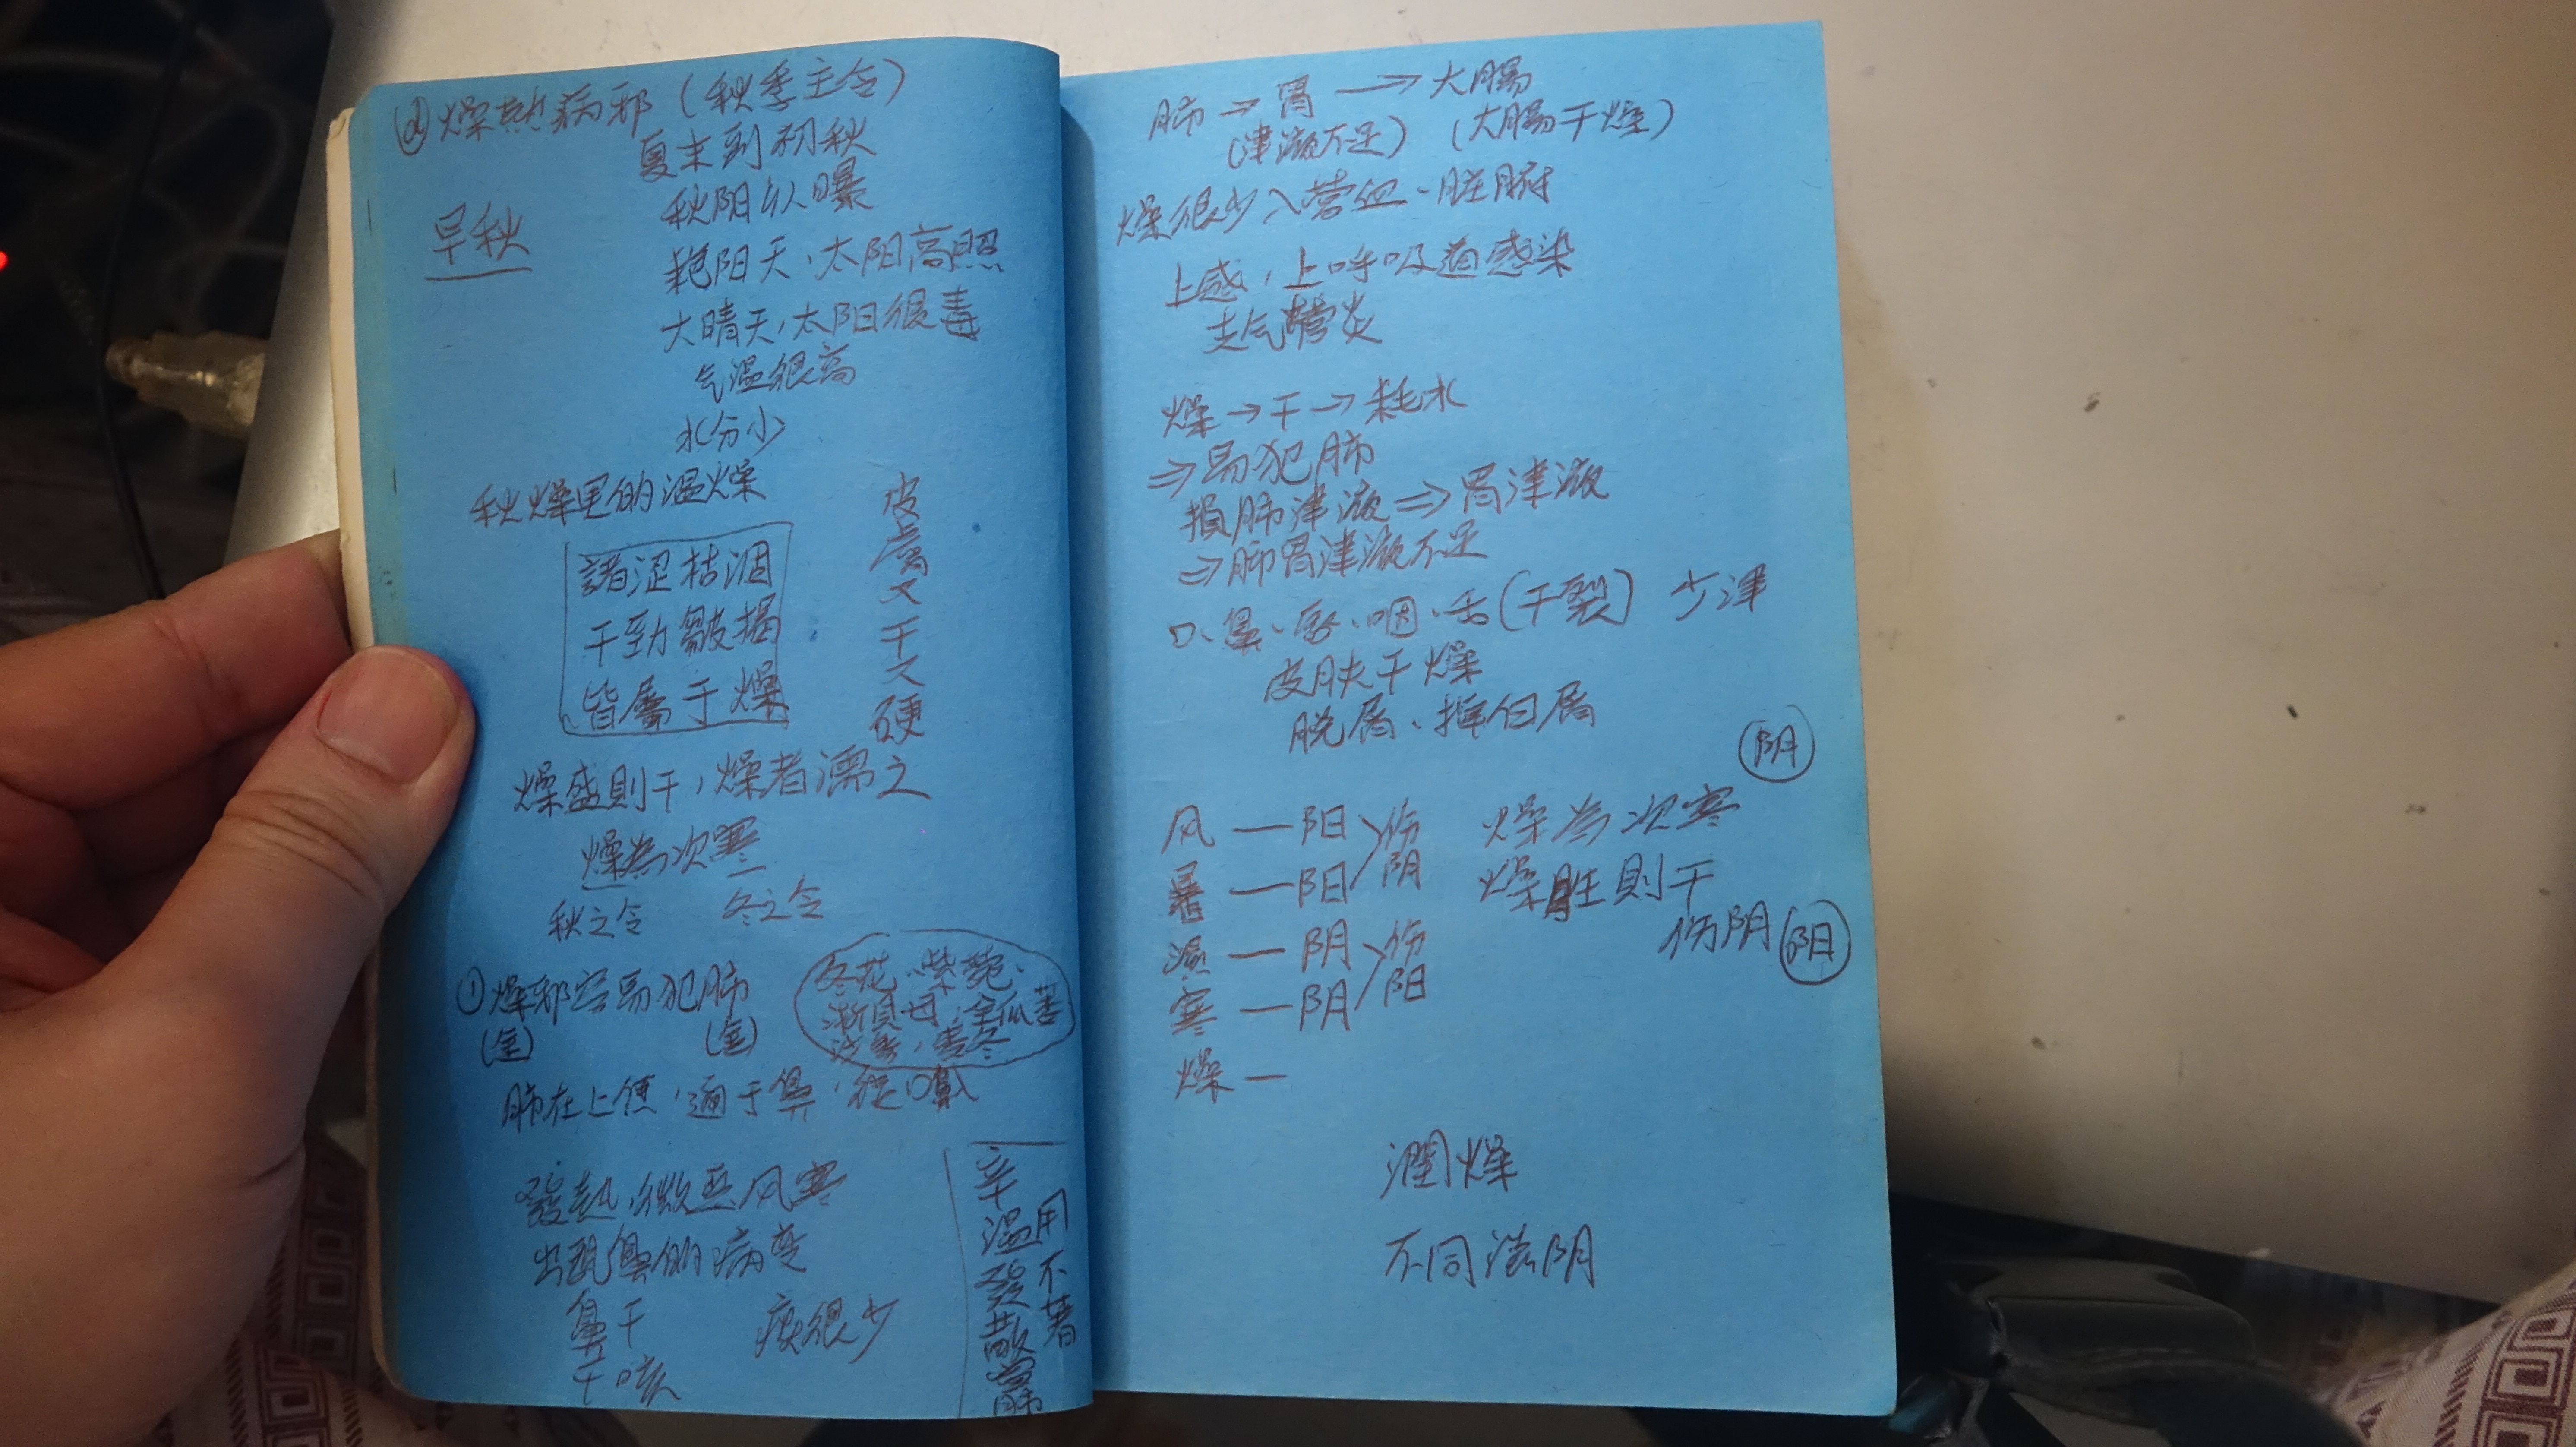 ④燥热病邪(秋季主令)
夏末到初秋
早秋
秋阳以曝
艳阳天、太阳高照
大晴天,太阳很毒
气温很高
水分少
秋燥里的温燥
諸涩枯涸
干劲皺揭
皆屬于燥
皮膚又干又硬
燥盛則干,燥者濡之
燥為次寒
秋之令 冬之令
①燥邪容易犯肺
(金) (金)
冬花、紫菀、
浙貝母、全瓜蒌
沙参,麦冬
肺在上焦,通于鼻,
發热,微恶风寒
出現鼻的病变
鼻干 痰很少
干咳
辛温發散
用不著
肺→胃→大腸
(津液不足) (大腸干燥)
燥很少入营血、脏腑
上感,上呼吸道感染
支气管炎
燥→干→耗水
⇒易犯肺
損肺津液⇒胃津液
⇒肺胃津液不足
口、鼻、唇、咽、舌(干裂) 少津
皮肤干燥
脱屑、掉白屑
阴
风—阳
暑—阳
伤阴
燥為次寒
燥胜則干
伤阴 阳
濕—阴
寒—阴
伤阳
燥—
潤燥
不同法阴